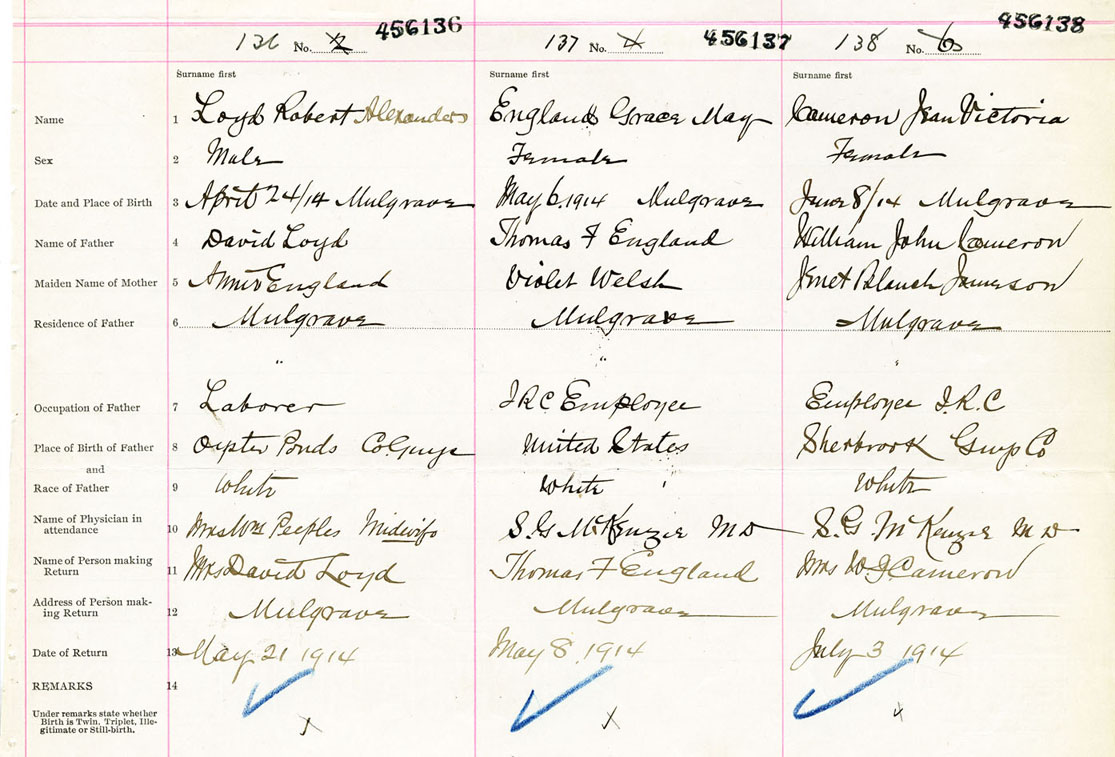 136 No. 2 456136 137 No. 4 456137 138 No. 6 456138
Surname first Surname first Surname first
Name 1 Loyd Robert Alexander England Grace May Cameron Jean Victoria
Sex 2 Male Female Female
Date and Place of Birth 3 April 24/14 Mulgrave May 6, 1914 Mulgrave June 8/14 Mulgrave
Name of Father 4 David Loyd Thomas F England William John Cameron
Maiden Name of Mother 5 Annie England Violet Welsh Janet Blanch Jameson
Residence of Father 6 Mulgrave Mulgrave Mulgrave
" " "
Occupation of Father 7 Laborer IRC Employee Employee I.R.C
Place of Birth of Father 8 Oyster Ponds Co Guys United States Sherbrook Guys Co
and
Race of Father 9 White White White
Name of Physician in
attendance 10 Mrs Wm Peeples Midwife S. G. McKenzie M D S. G. McKenzie M D
Name of Person making
Return 11 Mrs David Loyd Thomas F England Mrs W J Cameron
Address of Person mak-
ing Return 12 Mulgrave Mulgrave Mulgrave
Date of Return 13 May 21 1914 May 8, 1914 July 3 1914
REMARKS 14
Under remarks state whether
Birth is Twin, Triplet, Ille-
gitimate or Still-birth.